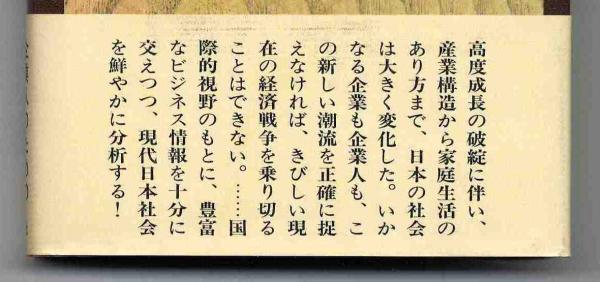 高度成長の破綻に伴い、
産業構造から家庭生活の
あり方まで、日本の社会
は大きく変化した。いか
なる企業も企業人も、こ
の新しい潮流を正確に捉
えなければ、きびしい現
在の経済戦争を乗り切る
ことはできない。……国
際的視野のもとに、豊富
なビジネス情報を十分に
交えつつ、現代日本社会
を鮮やかに分析する！